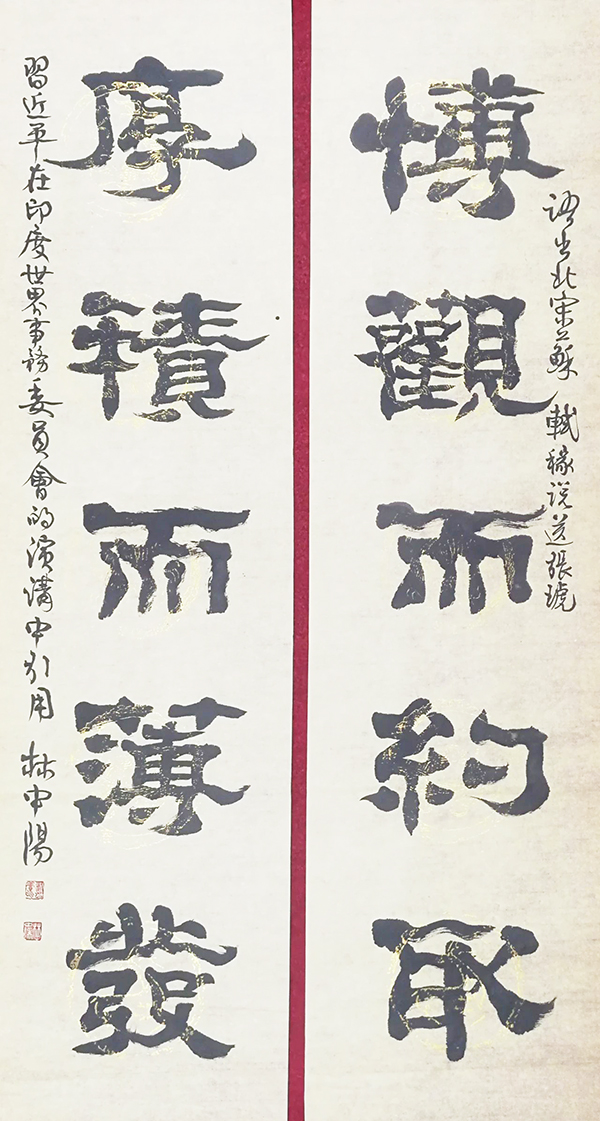 语出北宋蘇 軾稼说送張琥
愽觀而約取
厚積而薄發
習近平在印度世界事務委員會的演講中引用 林中陽